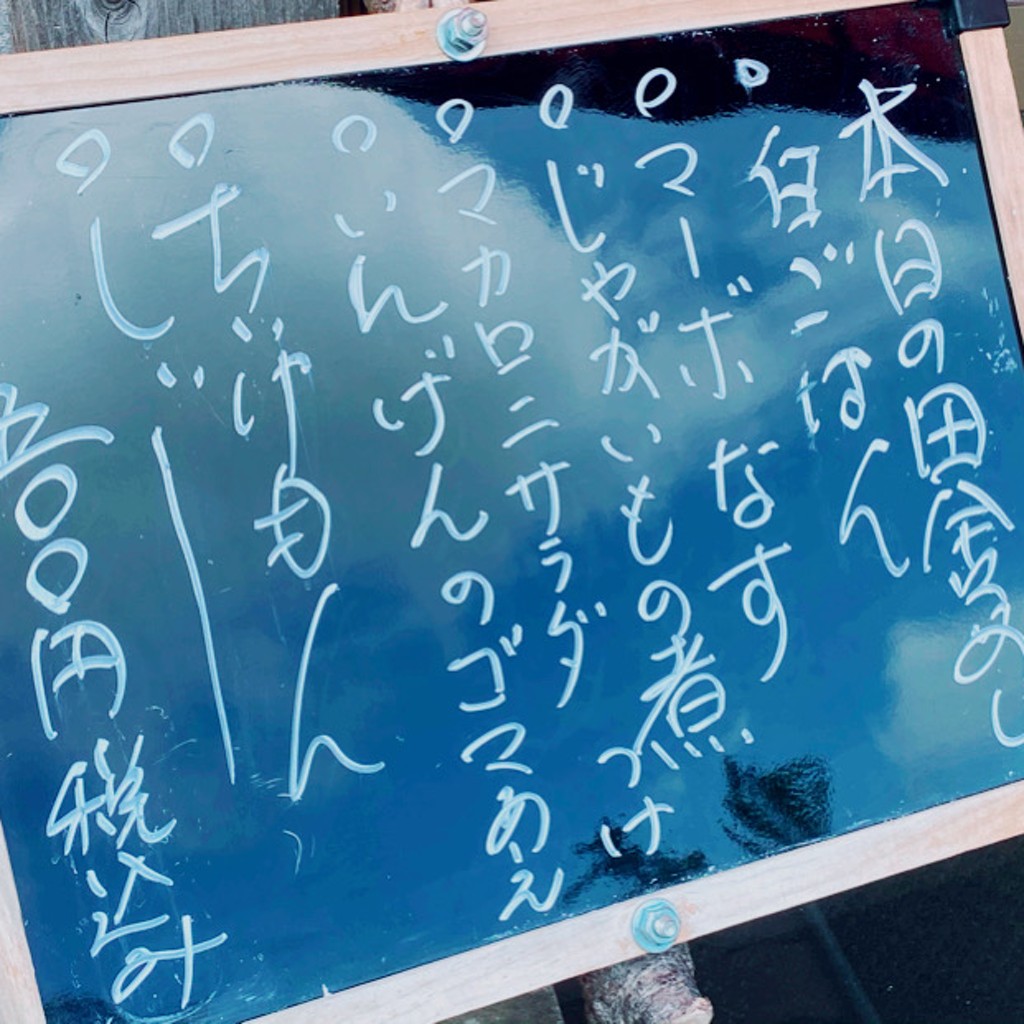 本日の田舎めし
○白ごはん
○マーボなす
○じゃがいもの煮つけ
○マカロニサラダ
○いんげんのゴマあえ
○ちじゅもん
○しじー
五〇〇円税込み